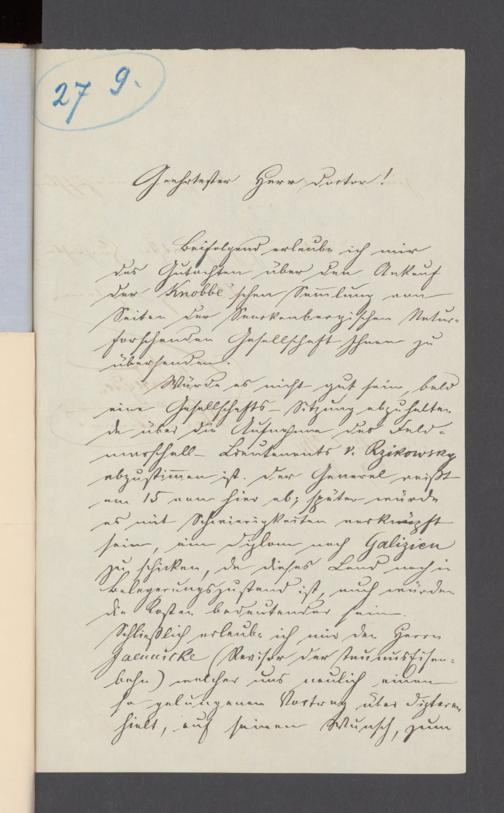 27 9.
Geehrtester Herr Doctor!
Beifolgend erlaube ich mir
das Gutachten über den Ankauf
der Knobbe'schen Sammlung von
Seiten der Senckenbergischen Natur-
forschenden Gesellschaft Ihnen zu
übersenden.
Würde es nicht gut sein, bald
eine Gesellschafts-Sitzung abzuhalten
da über die Aufnahme des Feld-
marschall-Lieutenants v. Rzikowsky
abzustimmen ist. Der General reißt
am 15 von hier ab; später würde
es mit Schwierigkeiten verknüpft
sein, ein Diplom nach Galizien
zu schicken, da dieses Land noch in
Belagerungszustand ist, auch würden
die Kosten bedeutender sein.
Schließlich erlaube ich mir den Herrn
Jaennicke (Revisor der Taunus Eisen-
bahn) welcher uns neulich einen
so gelungenen Vortrag über Dipteren
hielt, auf seinen Wunsch, zum